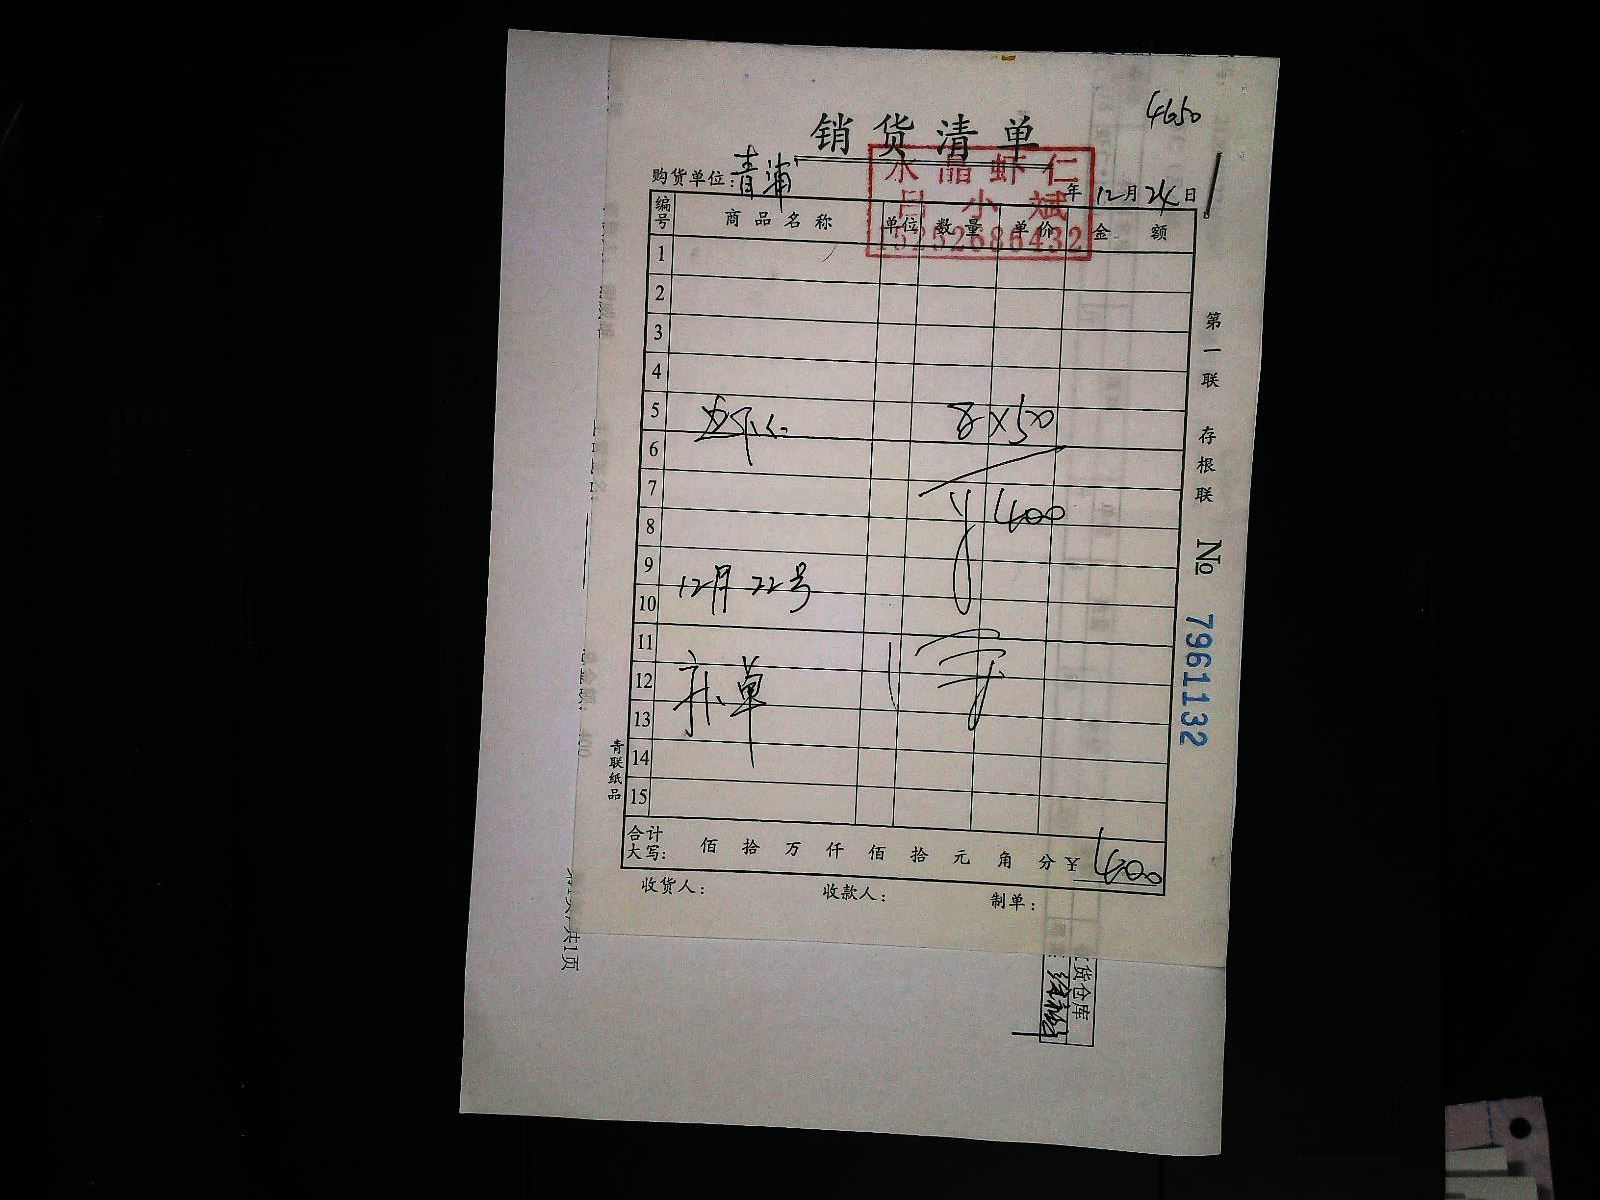 4650
销货清单
水晶虾仁
吕小斌
15252686432
购货单位：青浦
年 12月 24日
编号 商品名称 单位 数量 单价 金额
1
2
3
4
5 8×50
6
7
8 ¥400
9
10 12月22号
11
12 补单
13
14
15
合计
大写： 佰 拾 万 仟 佰 拾 元 角 分 ¥ 400
收货人： 收款人： 制单：
第一联 存根联 № 7961132
青联纸品
货仓库
共1页